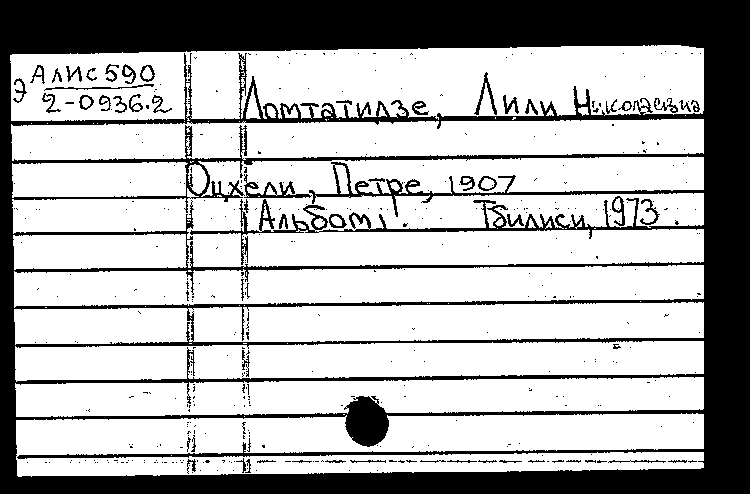 Э АЛИС 590
2-0936.2
Ломтатидзе, Лили Николаевна
Оцхели, Петре, 1907
[Альбом]. Тбилиси, 1973.